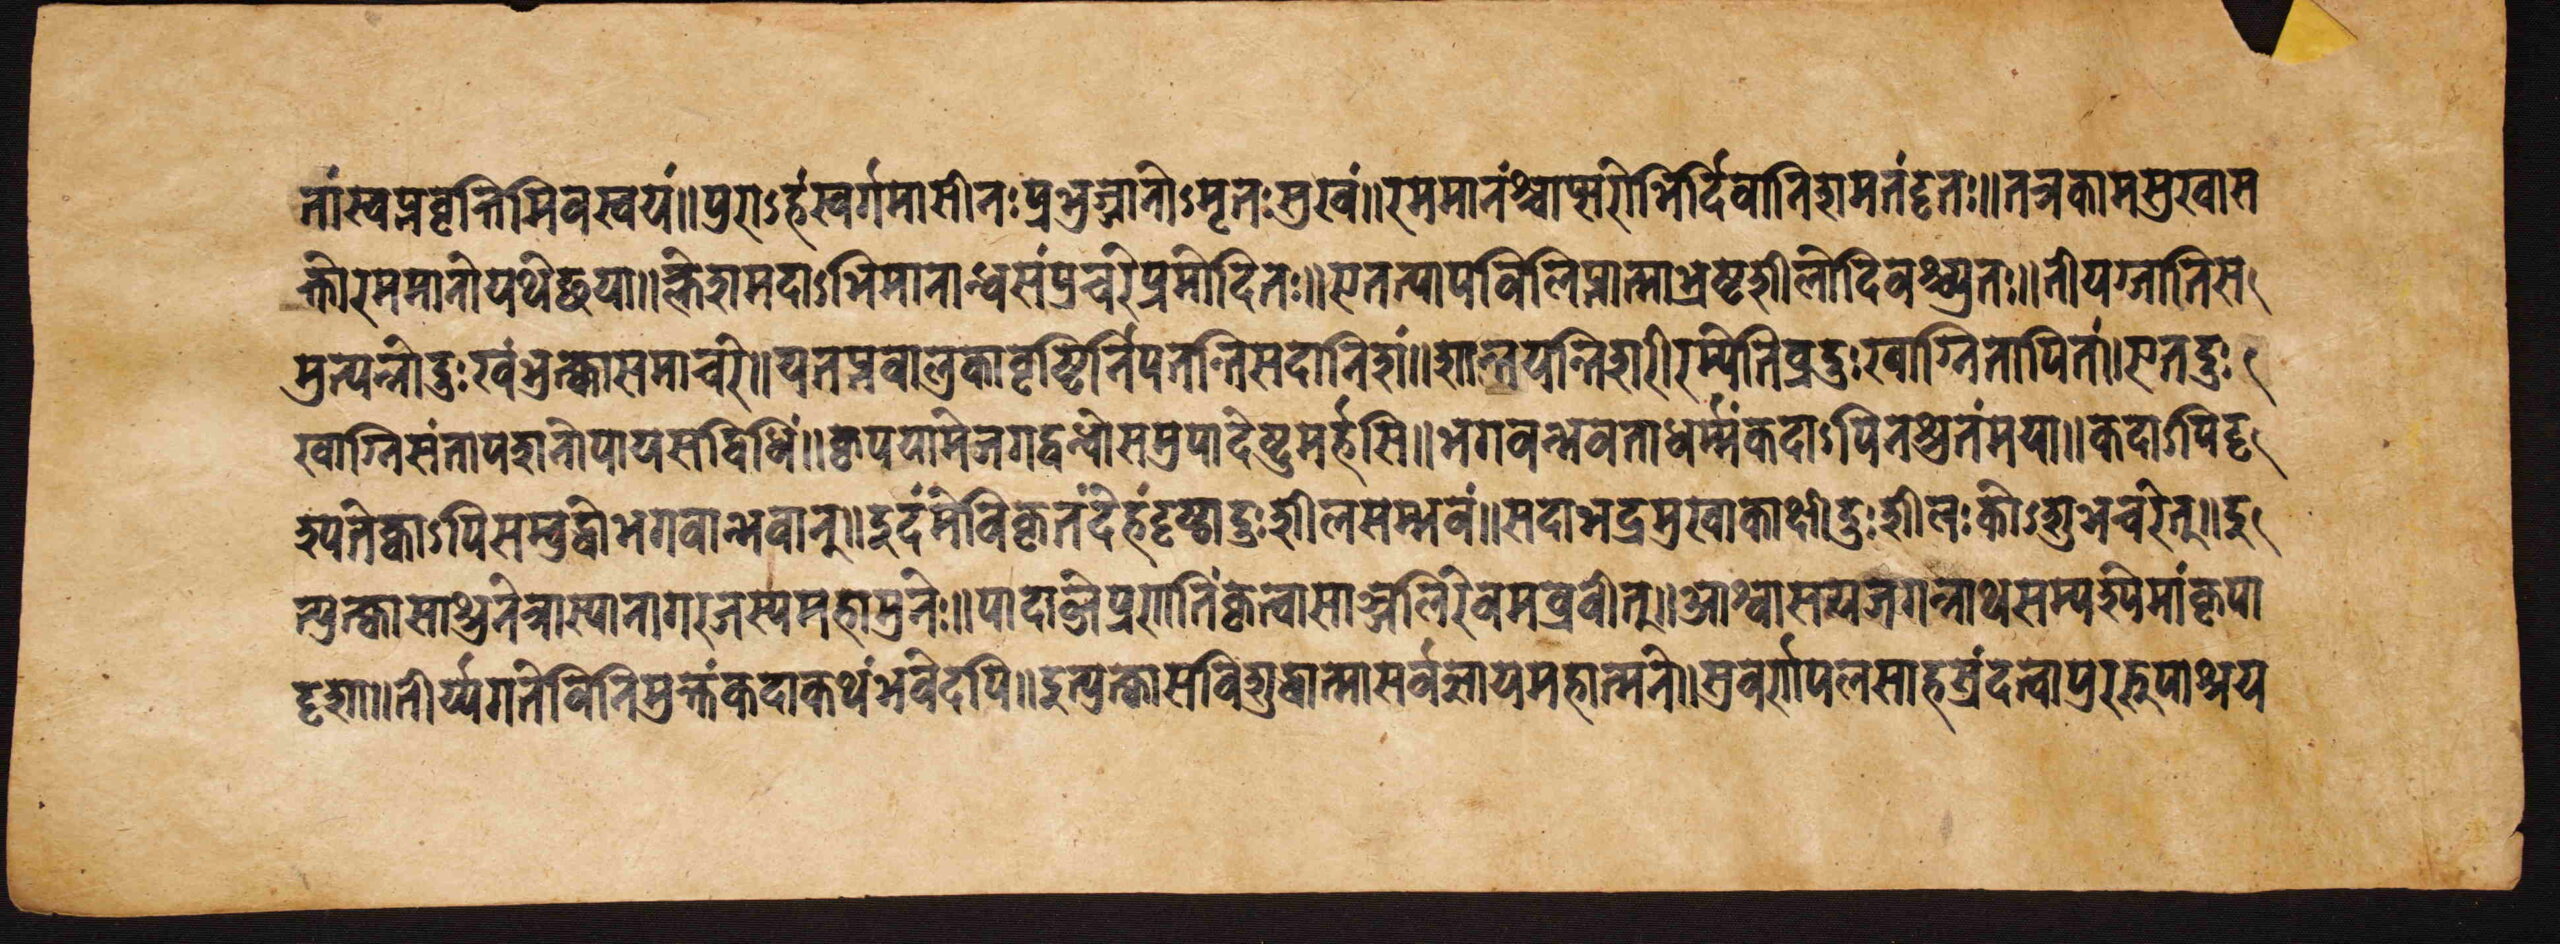 तां स्वप्नवृत्तिमिव स्वयं॥ पुराऽहं स्वर्गमासीनः प्रभुञ्जानोऽमृतः सुखं॥ रममानंश्चाप्सरोभिर्दिवानिशमतंदृतः॥ तत्र कामसुखास
क्तो रममानो यथेछया॥ क्लेशमदाऽभिमानान्ध सं प्रचरे प्रमोदितः॥ एतत्पापविलिप्तात्मा भ्रष्टशीलो दिवश्च्युतः॥ तीयग्जातिस
मुत्पन्नो दुःखं भुक्त्वा समाचरे॥ यतप्तवालुकावृष्टिर्निपतन्ति सदानिशं॥ शान्तयन्ति शरीरम्मेतिव्रदुःखाग्नितापितां॥ एतद्दुः
खाग्निसंतापशनोपायसद्विधिं॥ कृपया मे जगद्बन्धो समुपादेष्टुमर्हसि॥ भगवन्भवता धर्म्मं कदाऽपि न श्रुतं मया॥ कदाऽपि दृ
श्यते क्वाऽपि सम्बुद्धो भगवान्भवान्॥ इदं मे विकृतं देहं दृष्ट्वा दुःशीलसम्भवं॥ सदा भद्रसुखाकांक्षी दुःशीलः कोऽशुभे चरेत्॥ इ
त्युक्त्वा साश्रुनेत्रास्या नागरजस्य महामुनेः॥ पादाब्जे प्रणतिं कृत्वा साञ्जलिरेवमब्रवीत्॥ आश्वासय जगन्नाथ सम्पश्य मां कृपा
दृशा॥ तीर्य्यगते विनिमुक्तं कदा कथं भवेदपि॥ इत्युक्त्वा स विशुद्धात्मा सर्वज्ञाय महात्मने॥ सुवर्णपलसाहस्रं दत्वा पुरस्रुपाश्रय